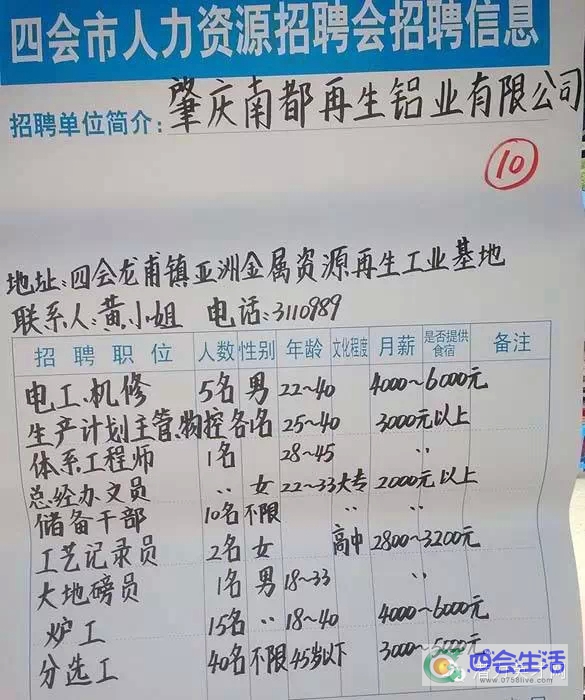 四会市人力资源招聘会招聘信息
招聘单位简介：肇庆南都再生铝业有限公司
10
地址：四会龙甫镇亚洲金属资源再生工业基地
联系人：黄小姐 电话：3110989
招聘职位 人数 性别 年龄 文化程度 月薪 是否提供食宿 备注
电工、机修 5名 男 22~40 4000~6000元
生产计划主管、物控 各1名 25~40 3000元以上
体系工程师 1名 28~45 〃
总经办文员 〃 女 22~33 大专 2000元以上
储备干部 10名 不限 〃 〃
工艺记录员 2名 女 高中 2800~3200元
大地磅员 1名 男 18~33 〃
炉工 15名 〃 18~40 4000~6000元
分选工 40名 不限 45岁以下 3000~5000元
四会生活
www.0758life.com